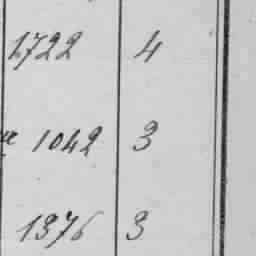 1722 4
1042 3
1376 3